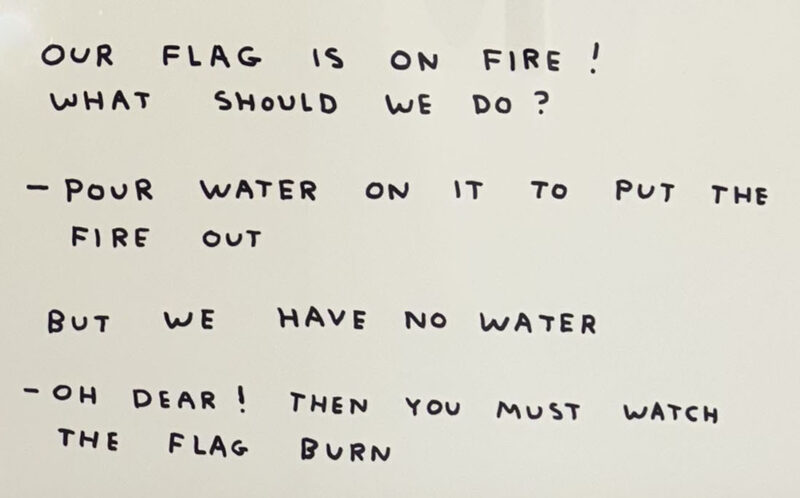 OUR FLAG IS ON FIRE!
WHAT SHOULD WE DO?
- POUR WATER ON IT TO PUT THE
FIRE OUT
BUT WE HAVE NO WATER
- OH DEAR! THEN YOU MUST WATCH
THE FLAG BURN